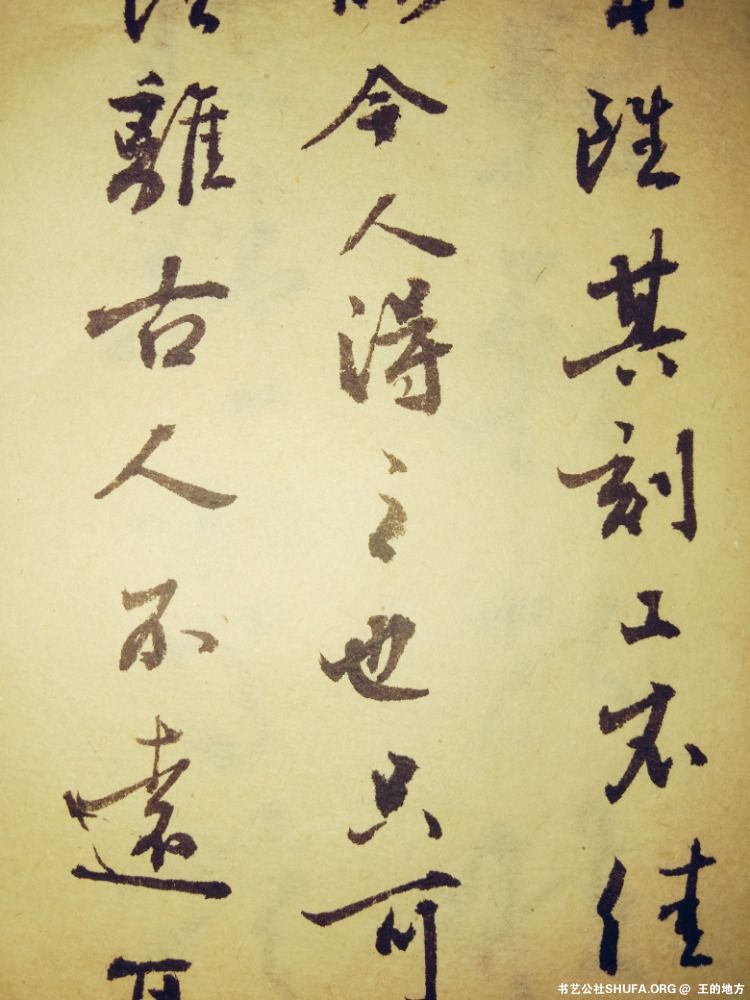 雖其刻工不佳
今人得之也只可
離古人不遠
书艺公社SHUFA.ORG @ 王的地方